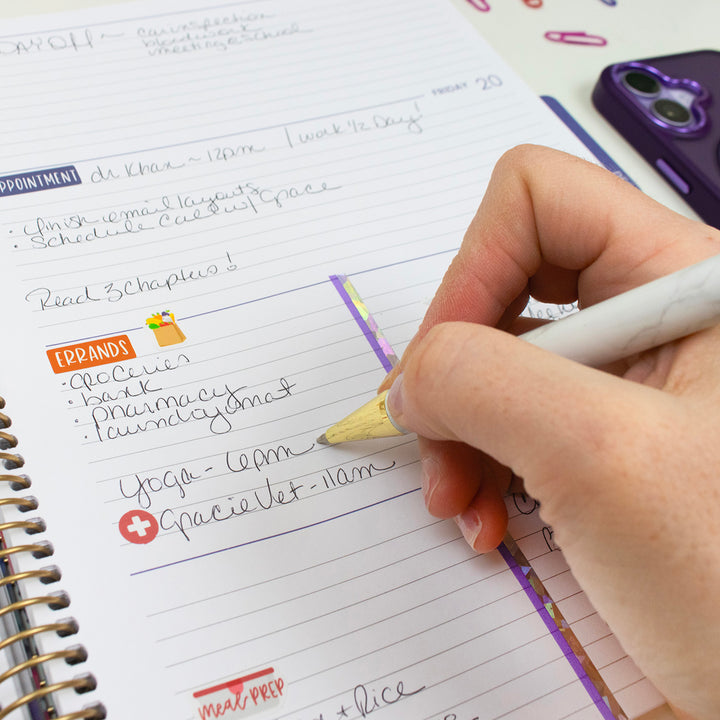 DAY OFF ~ car inspection
bloodwork
meeting @ school
FRIDAY 20
APPOINTMENT dr Khan ~ 12pm | work 1/2 Day!
· finish email layouts
· Schedule Call w/ Grace
Read 3 Chapters!
ERRANDS
· groceries
· bank
· pharmacy
· laundry mat
Yoga - 6pm
Gracie Vet - 11am
meal PREP
+ Rice